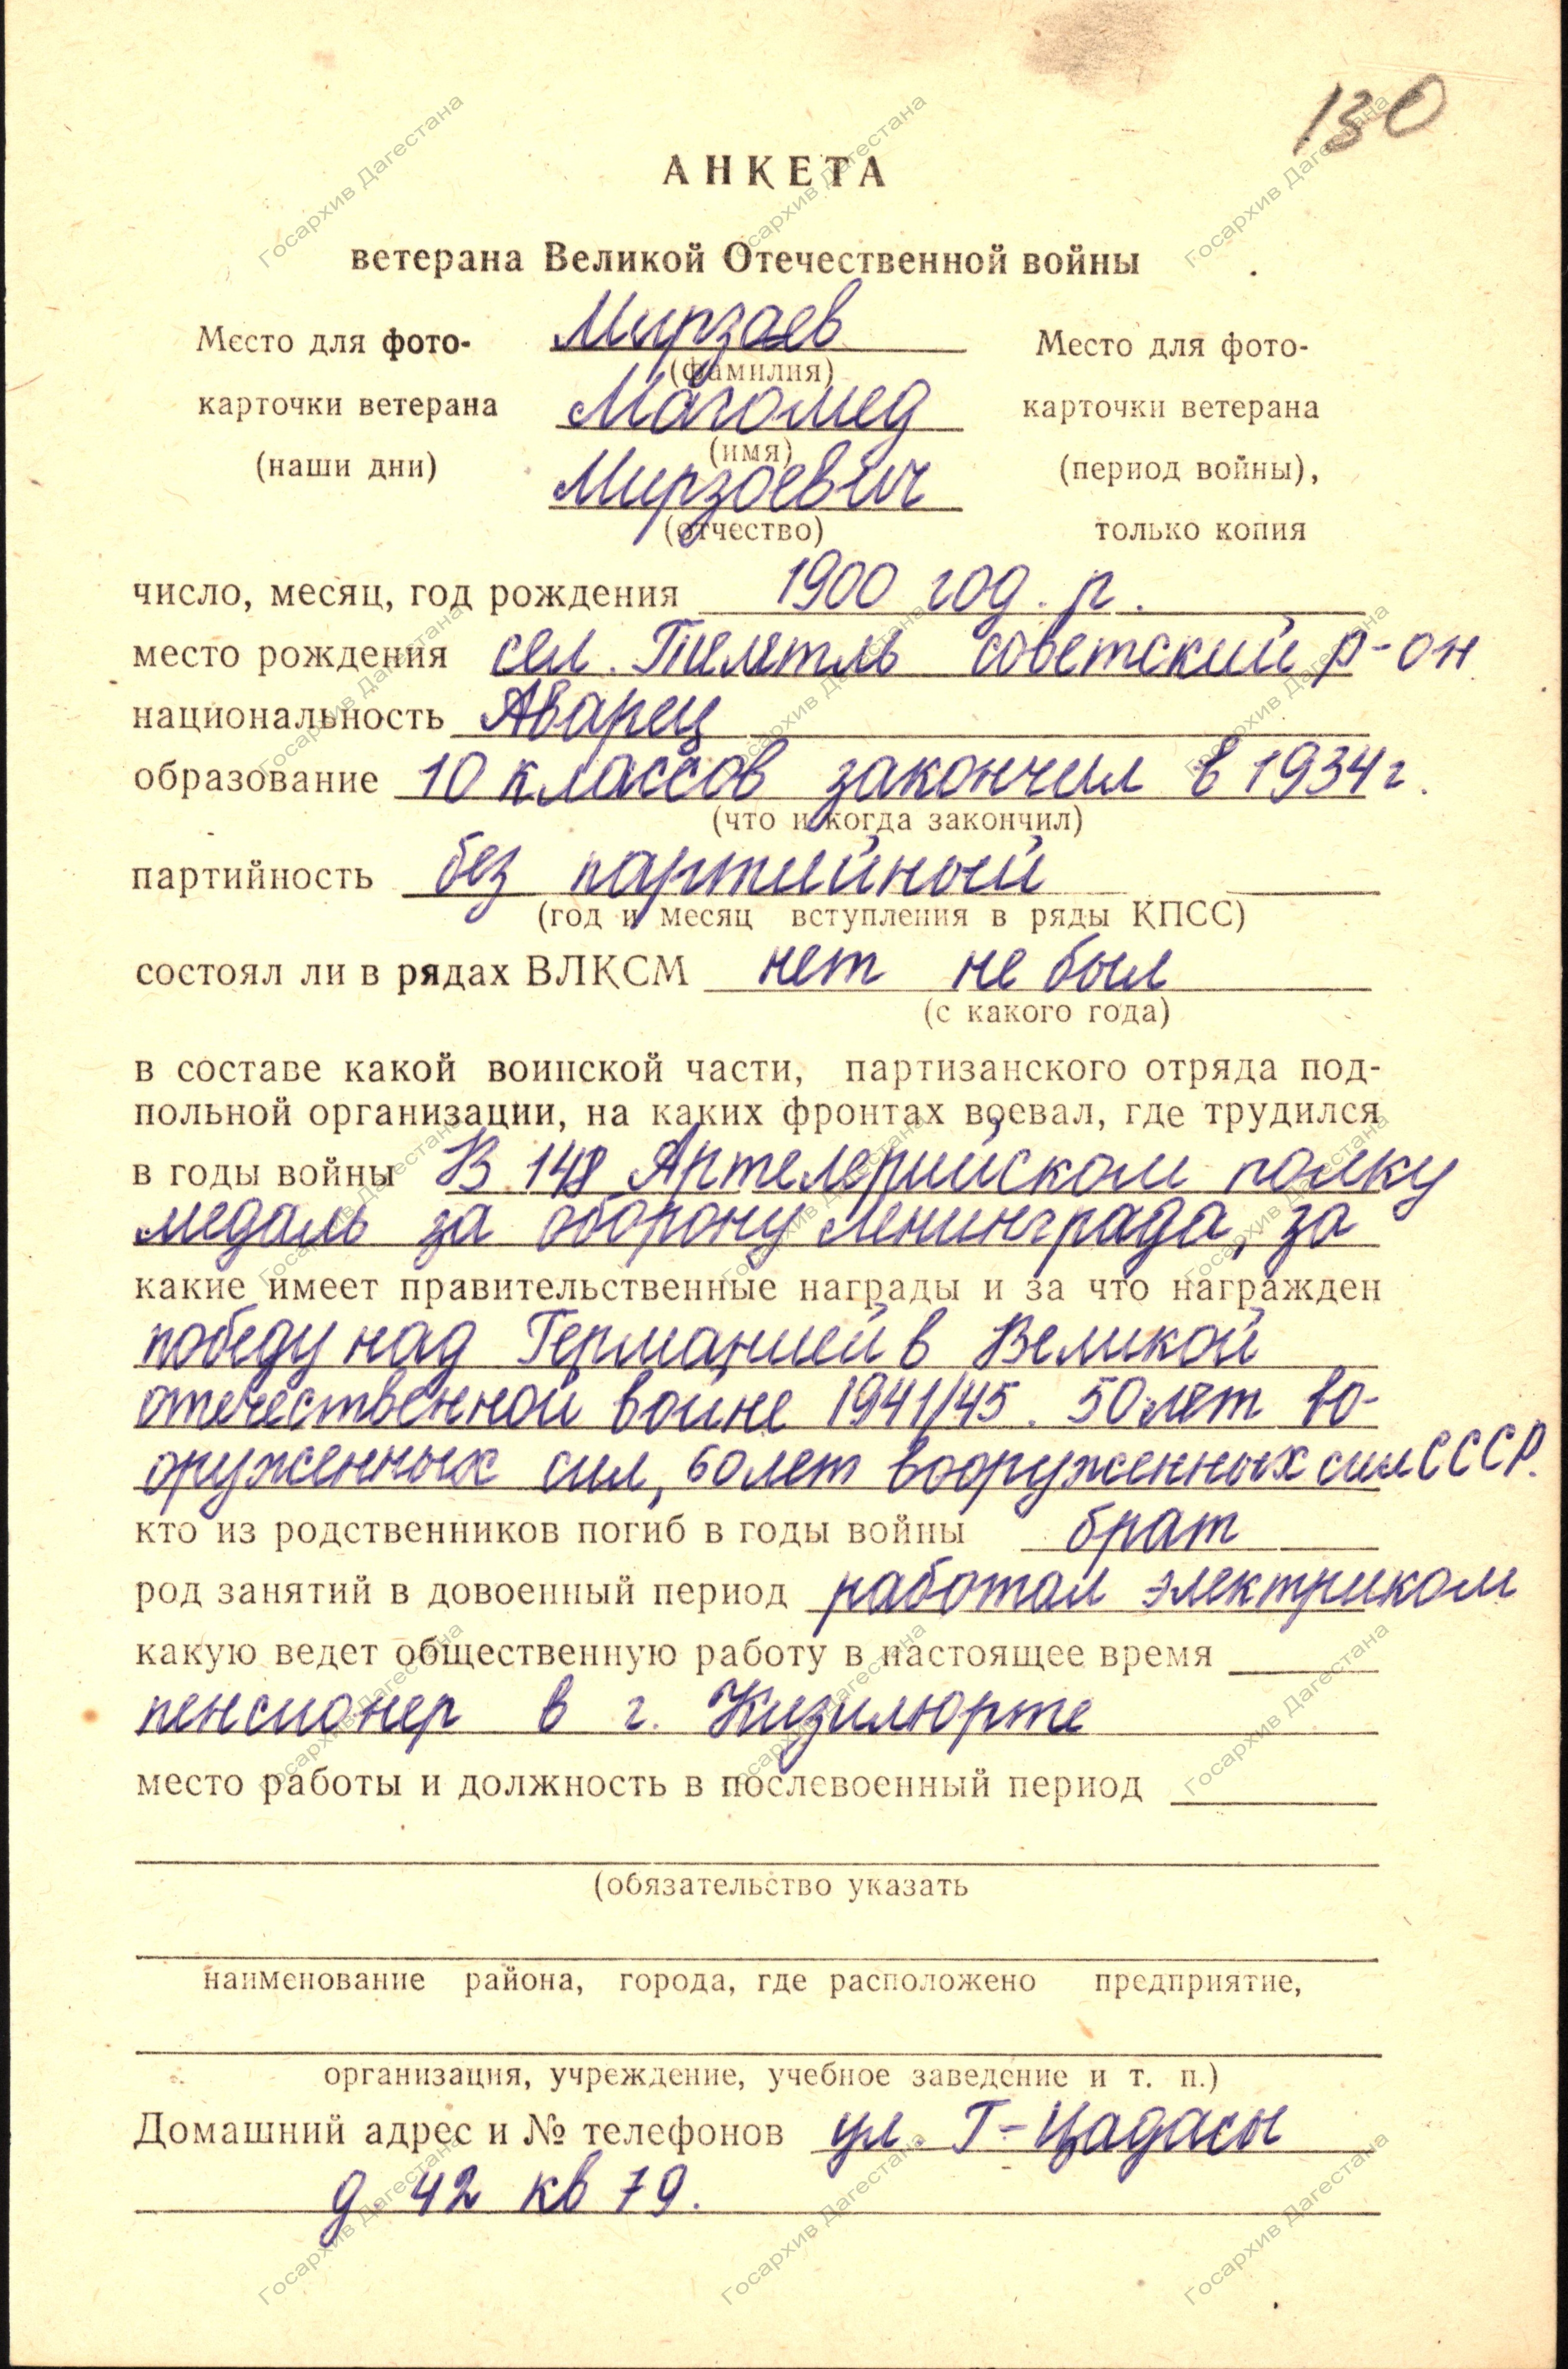 130
АНКЕТА
ветерана Великой Отечественной войны
Мирзаев
Место для фото-
(фамилия)
Место для фото-
карточки ветерана
Магомед
карточки ветерана
(имя)
(наши дни)
Мирзоевич
(период войны),
(отчество)
только копия
число, месяц, год рождения 1900 год. р.
место рождения сел. Тилетль советский р-он
национальность Аварец
образование 10 классов закончил в 1934 г.
(что и когда закончил)
партийность без партийной
(год и месяц вступления в ряды КПСС)
состоял ли в рядах ВЛКСМ нет не был
(с какого года)
в составе какой воинской части, партизанского отряда под-
польной организации, на каких фронтах воевал, где трудился
в годы войны В 148 Артелерийском полку
медаль за оборону Ленинграда, за
какие имеет правительственные награды и за что награжден
победу над Германией в Великой
отечественной войне 1941/45. 50 лет во-
оруженных сил, 60 лет вооруженных сил СССР.
кто из родственников погиб в годы войны брат
род занятий в довоенный период работал электриком
какую ведет общественную работу в настоящее время
пенсионер в г. Кизилюрте
место работы и должность в послевоенный период
(обязательство указать
наименование района, города, где расположено предприятие,
организация, учреждение, учебное заведение и т. п.)
Домашний адрес и № телефонов ул. Г-Цадасы
д. 42 кв 79.
Госархив Дагестана